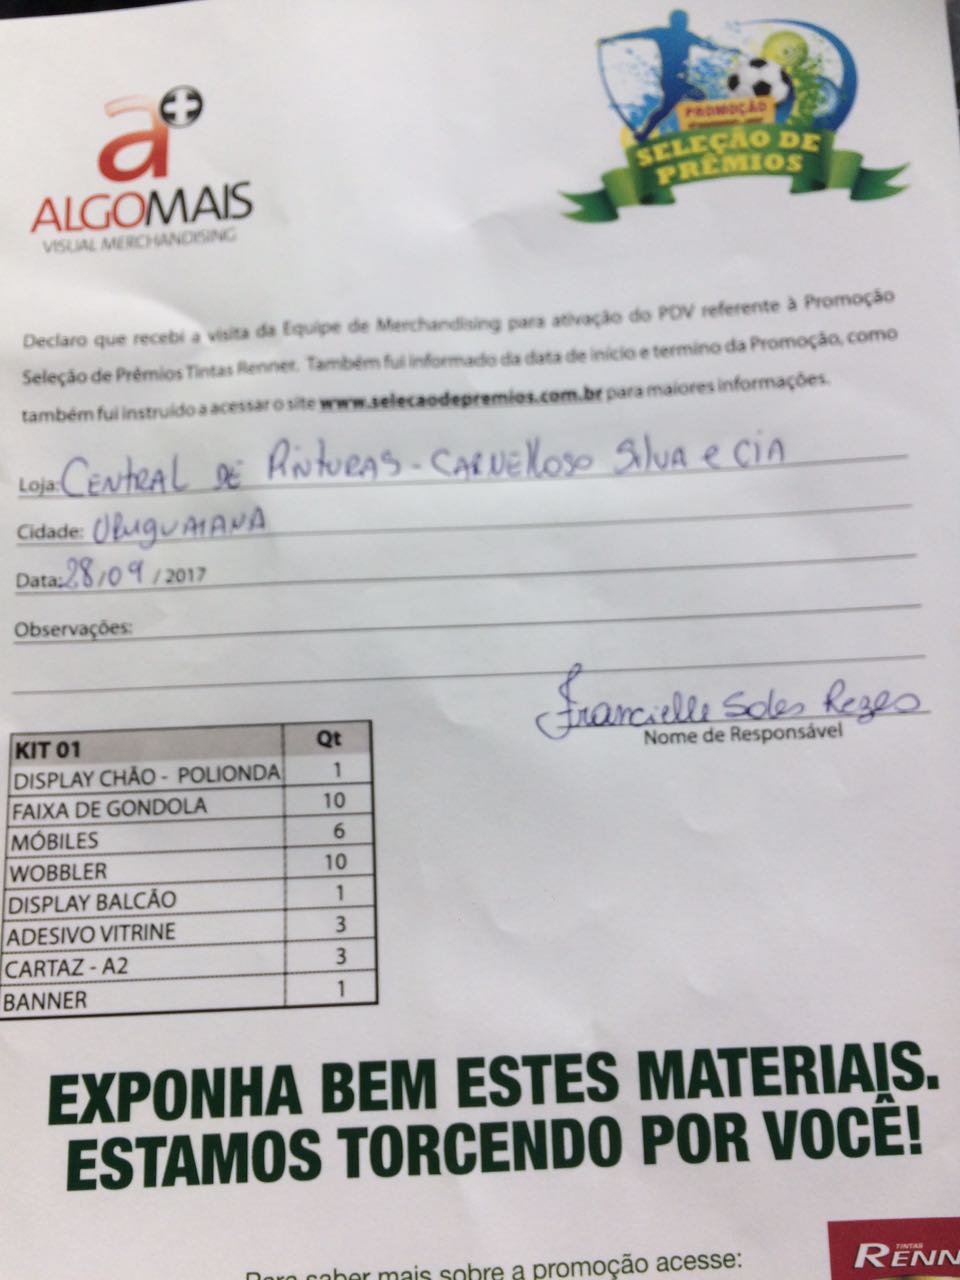 a+
ALGOMAIS
VISUAL MERCHANDISING
PROMOÇÃO
SELEÇÃO DE
PRÊMIOS
Declaro que recebi a visita da Equipe de Merchandising para ativação do PDV referente à Promoção
Seleção de Prêmios Tintas Renner. Também fui informado da data de início e termino da Promoção, como
também fui instruído a acessar o site www.selecaodepremios.com.br para maiores informações.
Loja: CENTRAL DE PINTURAS - CARVELLOSO SILVA e CIA
Cidade: URUGUAIANA
Data: 28/09 / 2017
Observações:
Francielle Soles
Nome de Responsável
KIT 01 Qt
DISPLAY CHÃO - POLIONDA 1
FAIXA DE GONDOLA 10
MÓBILES 6
WOBBLER 10
DISPLAY BALCÃO 1
ADESIVO VITRINE 3
CARTAZ - A2 3
BANNER 1
EXPONHA BEM ESTES MATERIAIS.
ESTAMOS TORCENDO POR VOCÊ!
TINTAS
RENN
Para saber mais sobre a promoção acesse: